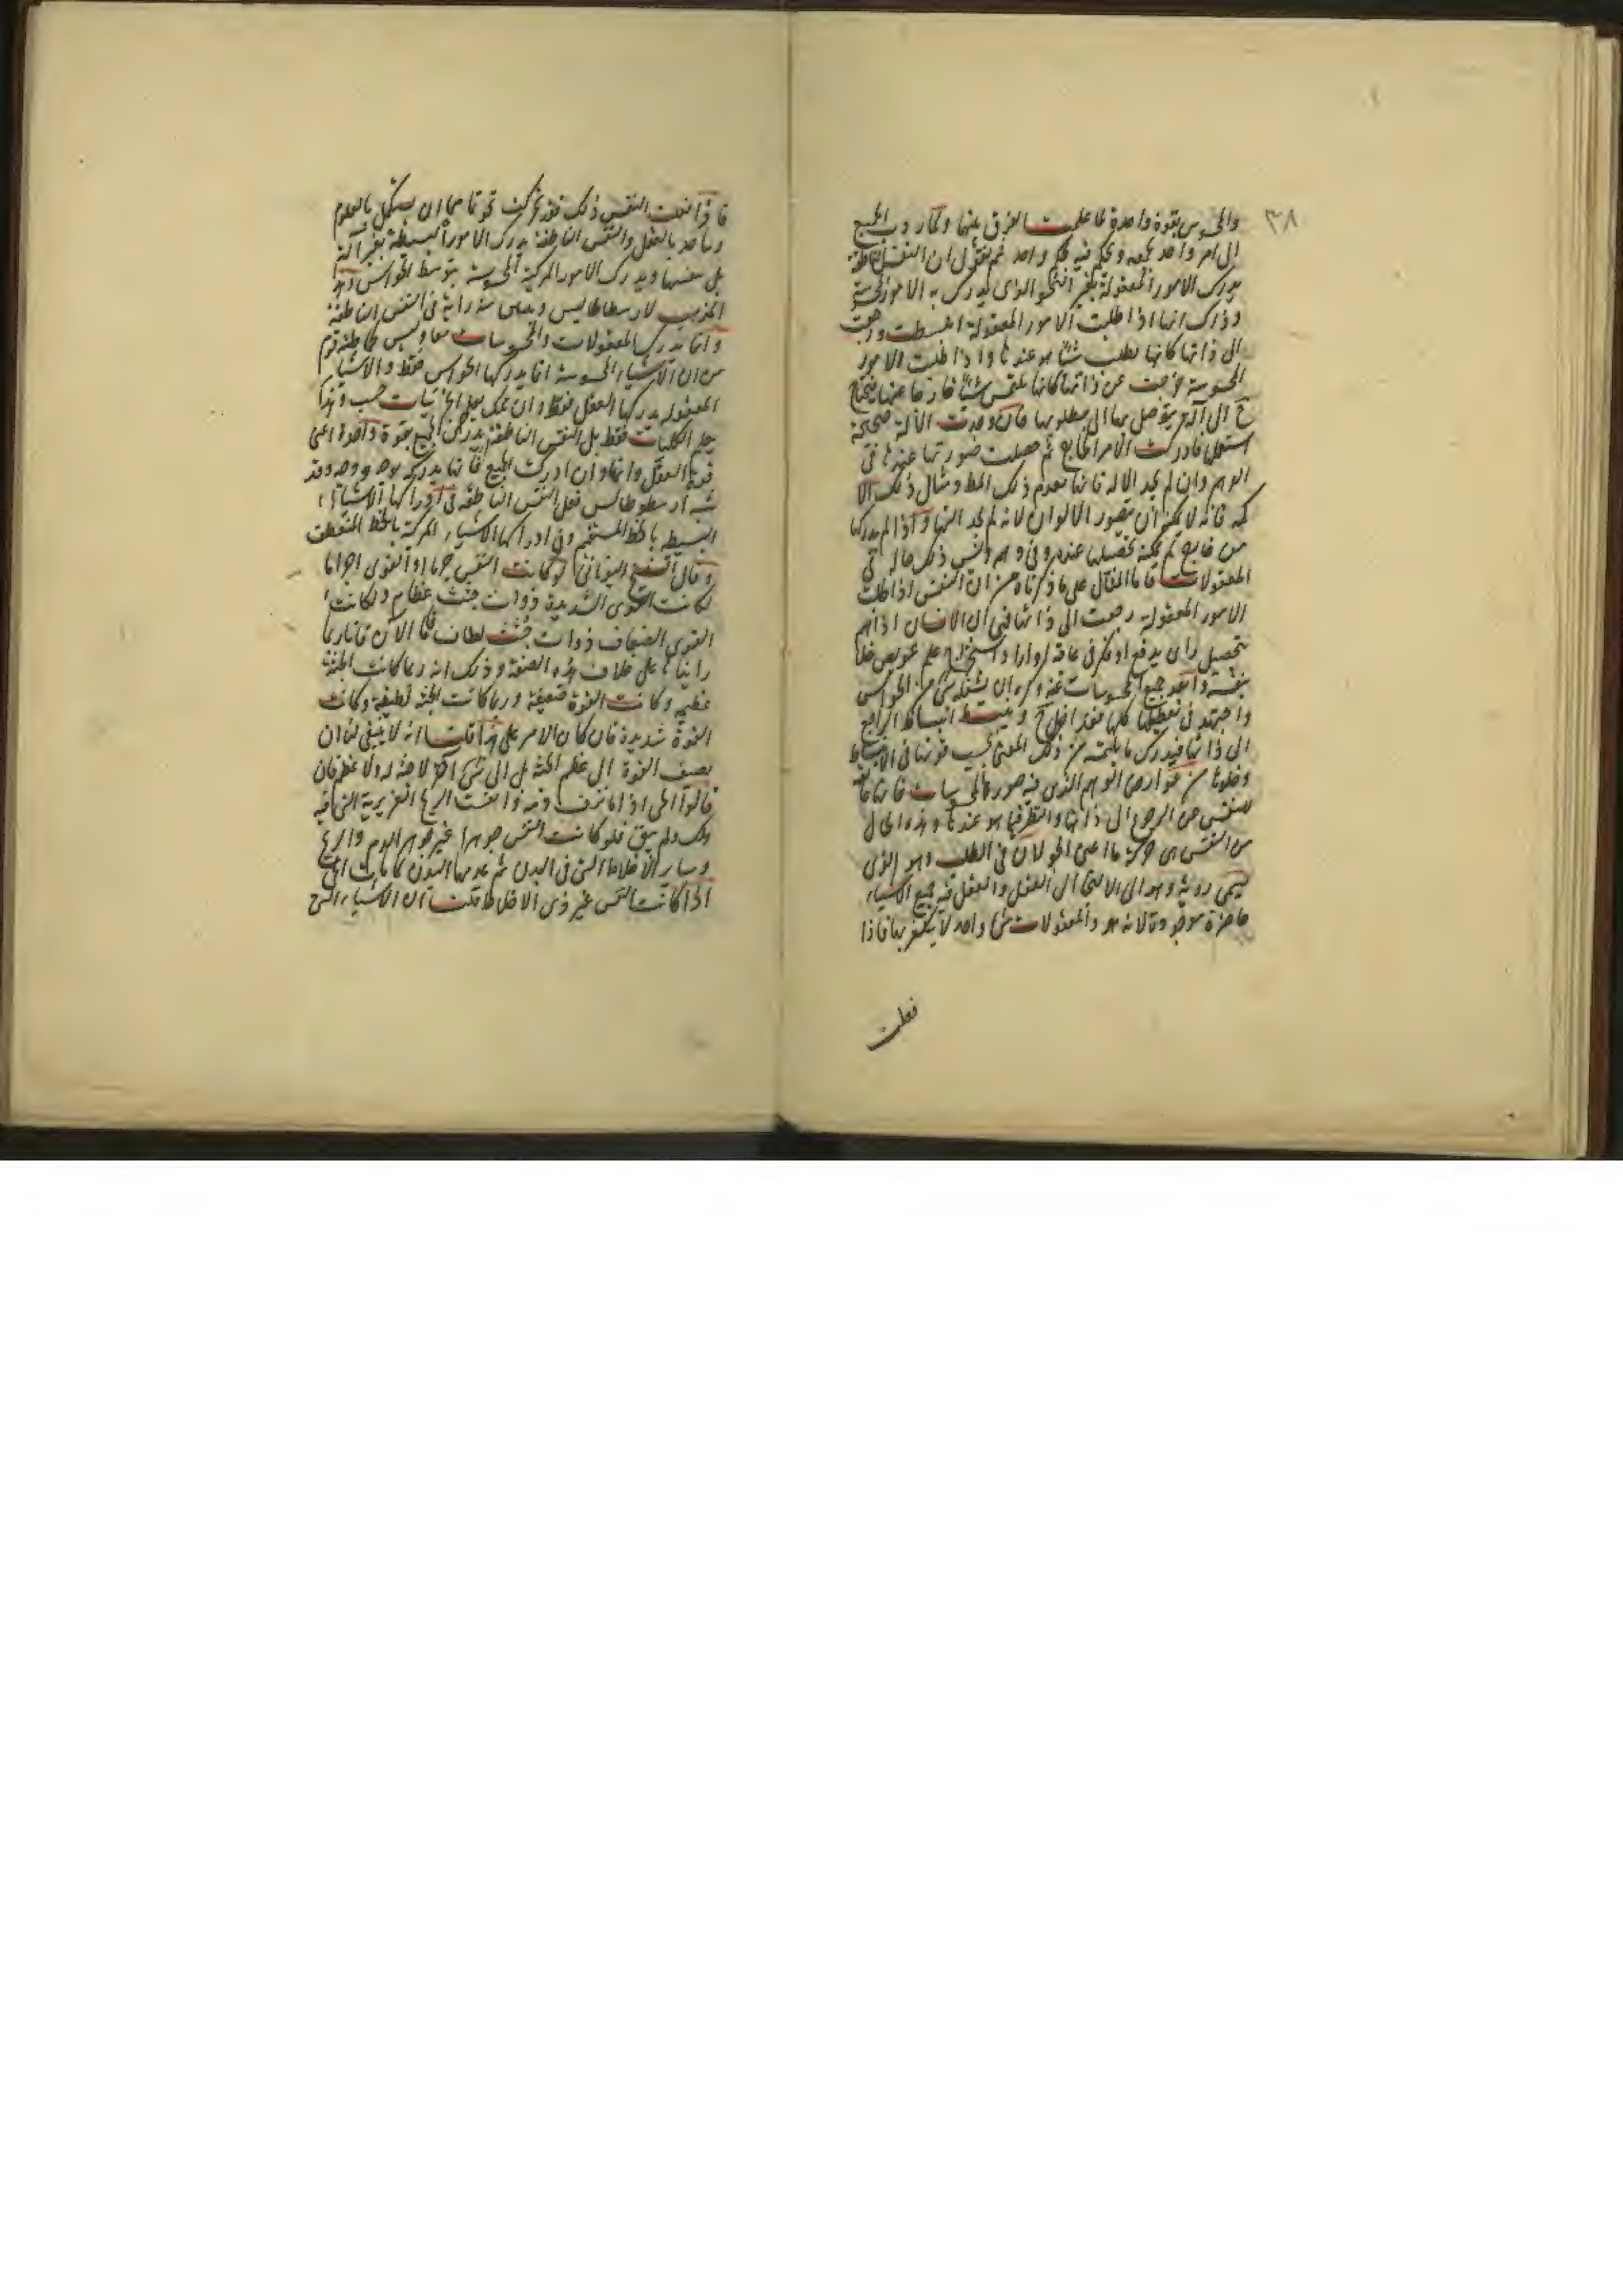 ٣٨
والمحسوس بقوة واحدة لما علمت الفرق بينهما ولما ردت الجميع
الى امر واحد يجمعه ويحكم فيه حكم واحد ثم نقول ان النفس الناطقة
يدرك الامور المعقولة بغير النحو الذى يدرك به الامور المحسوسة
وذلك انها اذا طلبت الامور المعقولة انبسطت ورجعت
الى ذاتها كانها تطلب شيئا هو عندها واذا طلبت الامور
المحسوسة خرجت عن ذاتها كانها تلتمس شيئا خارجا عنها فيحتاج
ح الى آلة يتوصل بها الى مطلوبها فان وجدت الآلة صحيحة
استعملتها فادركت الامر الخارج ثم حصلت صورتها عندها فى
الوهم وان لم يجد الآلة فانها تعدم ذلك ومثال ذلك الا
كمه فانه لا يمكنه ان يتصور الالوان لانه لم يجد آلتها واذا لم يدركها
من خارج لم يمكنه تحصيلها عنده وفى وهمه وليس ذلك حاله فى
المعقولات فاما المثال على ما ذكرناه من ان النفس اذا طلبت
الامور المعقولة رجعت الى ذاتها فهى ان الانسان اذا هم
بتحصيل راى بديع او فكر فى عاقبة او اراد استخراج علم عويص خلا
بنفسه وابعد جميع المحسوسات عنه وكره ان يشغله شئ من الحواس
واجتهد فى تعطيلها كلها فقد اخل ح وينبسط انبساط الراجع
الى ذاتها فيدرك ما يلتمسه من ذلك المعنى بحسب قوتها فى الانبساط
وخلوها من عوارض الوهم الذى فيه صور المحسوسات فانها
للنفس عن الرجوع الى ذاتها والنظر فيما هو عندها وهذه الحال
من النفس هى حركة ما اعنى الجولان فى الطلب وهو الذى
يسمى روية وهو الى الالتجا الى العقل والعقل فيه جميع الاشياء
حاضرة موجودة لانه هو والمعقولات شئ واحد لا يتغير بها فاذا
فعلت
فاذا فعلت النفس ذلك فقد تحركت نحو تمامها ان يستكمل بالعلوم
ويتاحد بالعقل والنفس الناطقة يدرك الامور البسيطة بغير آلة
بل بنفسها ويدرك الامور المركبة المحسوسة بتوسط الحواس وهذا
المذهب لارسطاطاليس رايه فى النفس الناطقة
وانما يدرك المعقولات والمحسوسات معا وليس كما ظنه قوم
من ان الاشياء المحسوسة انما يدركها الحواس فقط والاشياء
المعقولة يدركها العقل فقط وان الحس يعلم الجزئيات حسب وهذا
يعلم الكليات فقط بل النفس الناطقة يدرك الجميع بقوة واحدة اعنى
قوة العقل وانها وان ادركت الجميع فانها يدركه بوجه ووجه وقد
شبه ارسطوطالس فعل النفس الناطقة فى ادراكها الاشياء
البسيطة بالخط المستقيم وفى ادراكها الاشياء المركبة بالخط المنعطف
وقال الشيخ اليونانى لو كانت النفس جرما او القوى اجراما
لكانت القوى الشديدة ذوات جثث عظام ولكانت
القوى الضعاف ذوات جثث لطاف فاما الآن فانا ربما
رايناها على خلاف هذه الصفة وذلك انه ربما كانت الجثة
عظيمة وكانت القوة ضعيفة وربما كانت الجثة لطيفة وكانت
القوة شديدة فان كان الامر على هذا قلت انه لا ينبغى لنا ان
نضيف القوة الى عظم الجثة بل الى شئ آخر لا جثة له ولا عظم فان
قالوا الحى اذا ما نزف دمه وانفشت الريح الغريزية التى فيه
هلك ولم يبق فلو كانت النفس جوهرا غير جوهر الدم والريح
وساير الاخلاط التى فى البدن ثم عدمها البدن لما مات الحى
اذا كانت النفس غير ذى الاخلاط قلت ان الاشياء التى